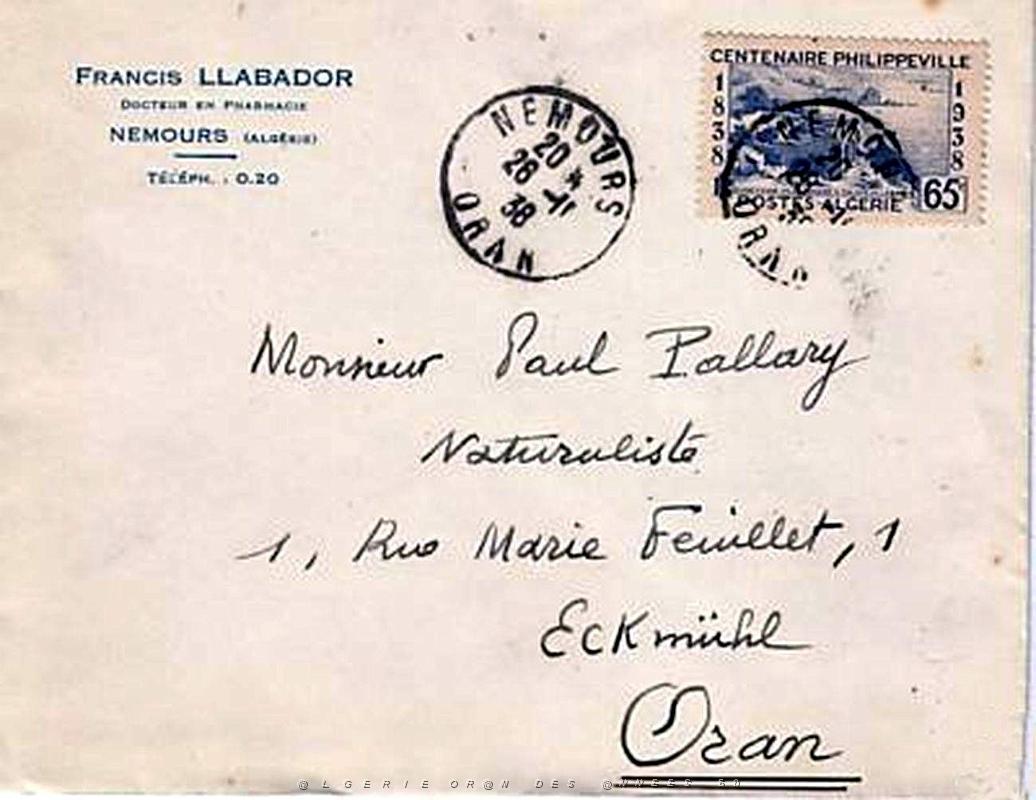 FRANCIS LLABADOR
DOCTEUR EN PHARMACIE
NEMOURS (ALGÉRIE)
TÉLÉPH. : 0.20
NEMOURS
20 *
26 -11
38
ORAN
CENTENAIRE PHILIPPEVILLE
1838
1938
POSTES ALGERIE
65
NEMOURS
ORAN
Monsieur Paul Pallary
Naturaliste
1, Rue Marie Feuillet, 1
Eckmühl
Oran
@LGERIE OR@N DES @NNEES 50